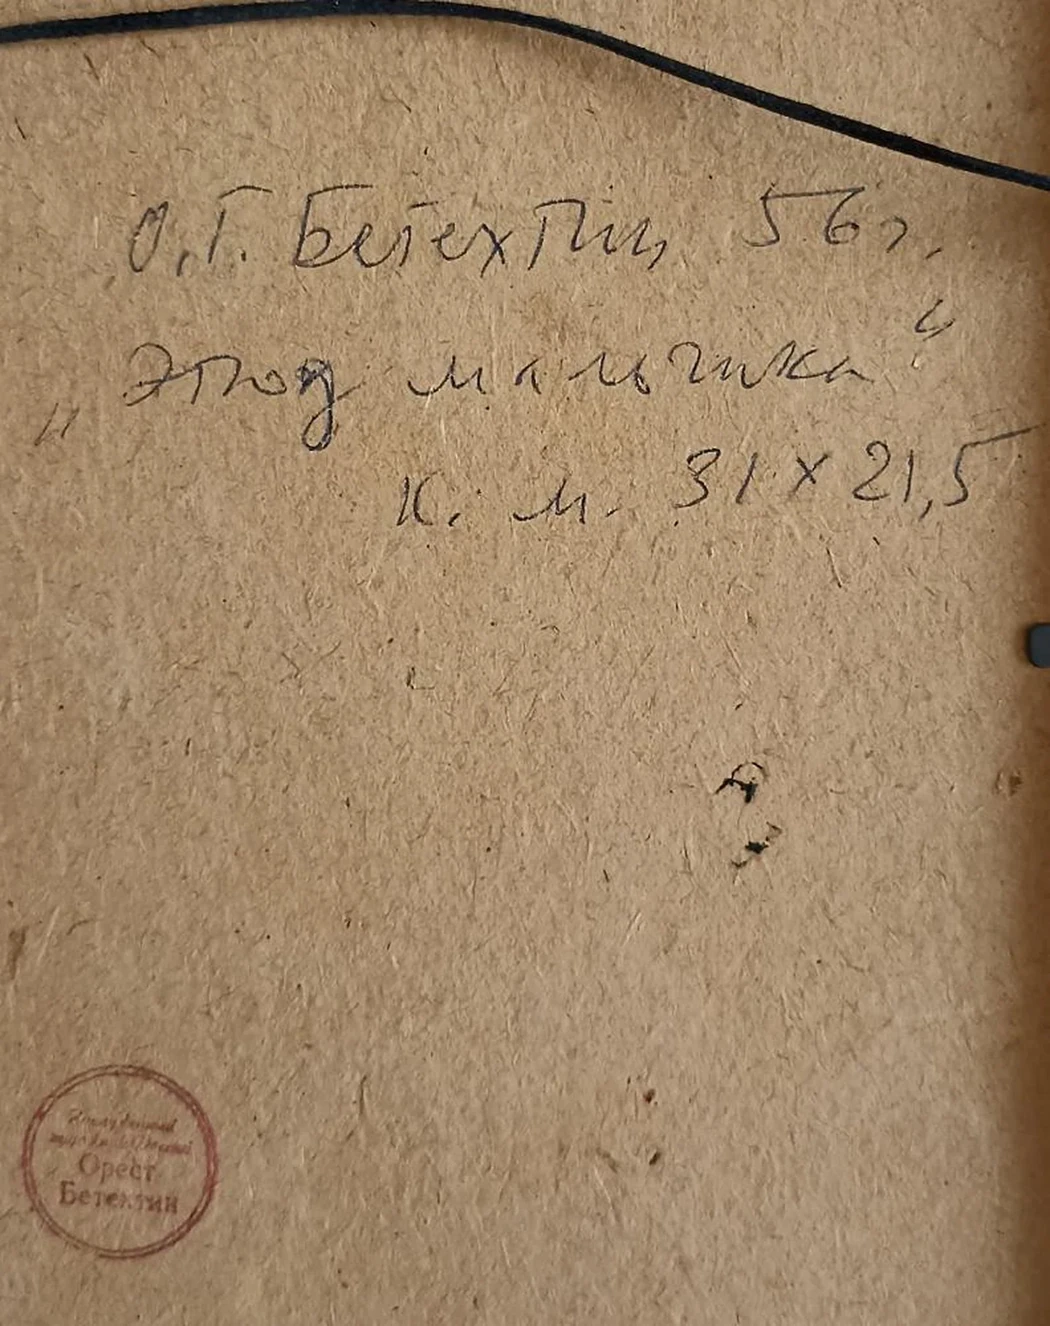 О.Г. Бетехтин 56 г.
„Этюд мальчика“
К. м. 31 х 21,5
Орест
Бетехтин